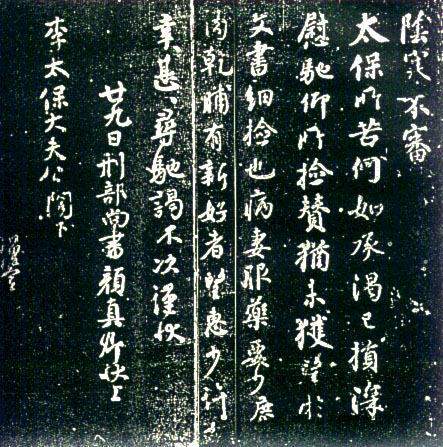 陰寒不審
太保所苦何如承渴已損深
慰馳仰所撿贊猶未獲望於
文書細撿也病妻服藥要少鹿
肉乾脯有新好者望惠少許
幸甚〻尋馳謁不次謹狀
廿九日刑部尚書顏真卿狀上
李太保大夫公閤下